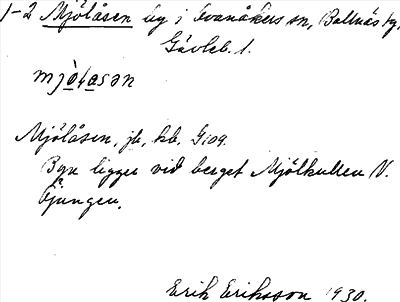 1-2 Mjölåsen by i Ovanåkers sn, Bollnäs tg.
Gävleb. l.
Mjölåsen, jb, kb, G109.
Byn ligger vid berget Mjölkullen V.
Öjungen.
Erik Eriksson 1930.